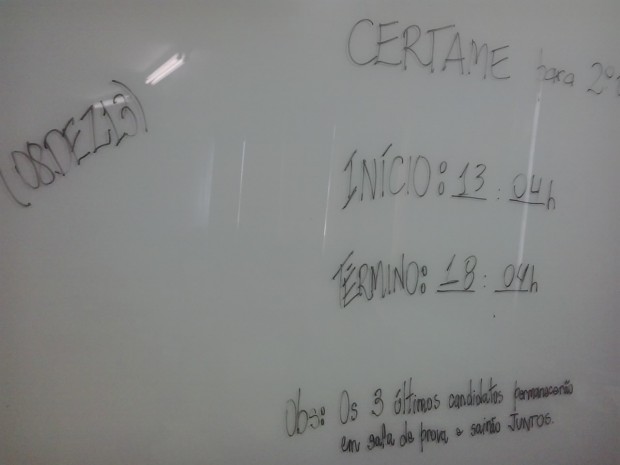 CERTAME para 2º
(08DEZ13)
INÍCIO: 13 : 04h
TÉRMINO: 18 : 04h
Obs: Os 3 últimos candidatos permanecerão
em sala de prova e sairão JUNTOS.